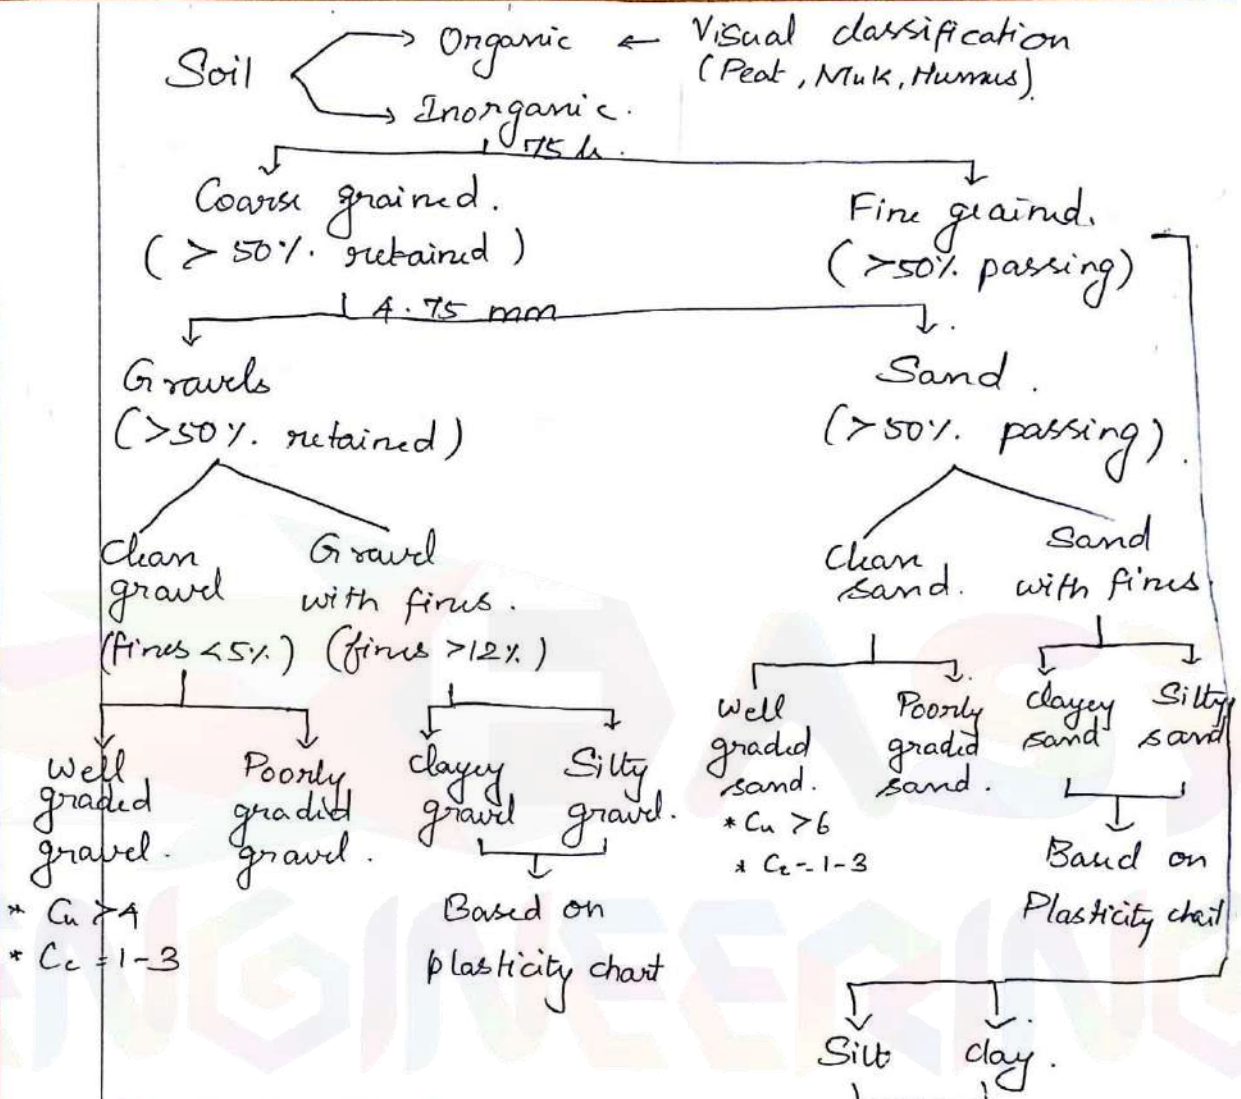 Soil
Organic ← Visual classification
(Peat, Muk, Humus).
Inorganic.
75 μ.
Coarse grained.
(> 50%. retained)
Fine grained.
(>50% passing)
4.75 mm
Gravels
(>50%. retained)
Sand.
(>50%. passing).
Clean
gravel
(fines <5%)
Gravel
with fines.
(fines >12%)
Clean
sand.
Sand
with fines
Well
graded
gravel.
* Cu >4
* Cc = 1-3
Poorly
graded
gravel.
Clayey
gravel
Silty
gravel.
Based on
plasticity chart
Well
graded
sand.
* Cu >6
* Cc = 1-3
Poorly
graded
sand.
Clayey
sand
Silty
sand
Based on
Plasticity chart
Silt
clay.
ENGINEERING